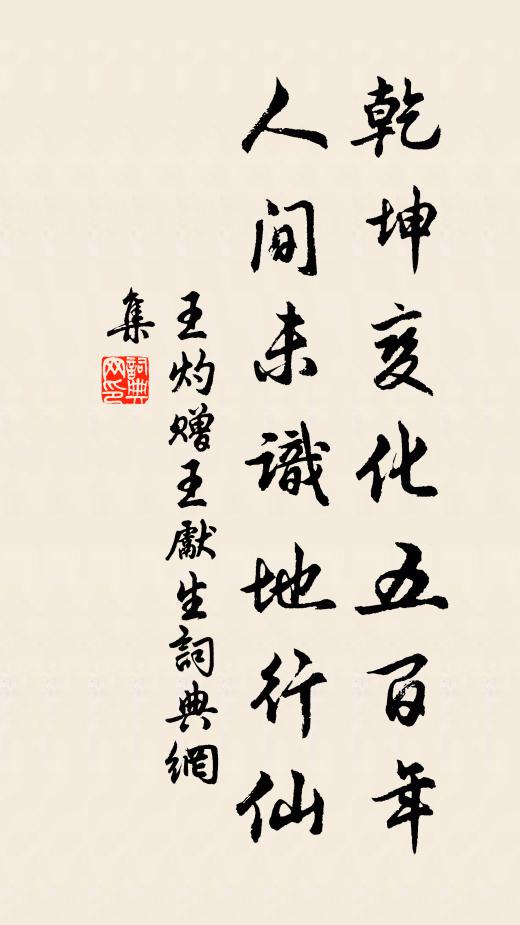 乾坤变化五百年
人间未識地行仙
王灼赠王獻生詞典網
集
詞典网印